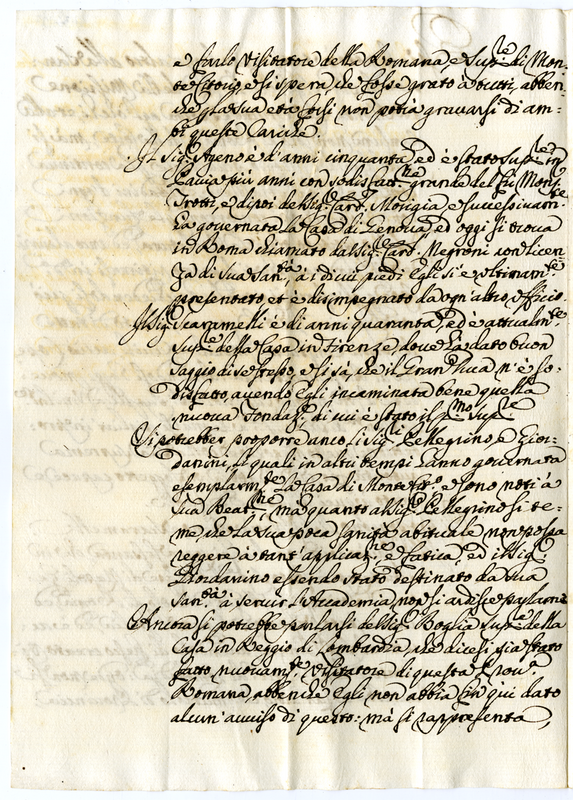 e farlo Visitatore della Romana, e Sup.re di Mon-
te Citorio e si spera, che fosse grato à tutti, abben-
che p la sua età forsi non potrà gravarsi di am-
bi queste Cariche.
Il Sig. Ayeno è d'anni cinquanta, ed è stato Sup.re in
Pavia più anni con sodisfat.ne grande del fù Mons.
Trotti, e dipoi del Sig. Card. Morigia, e successivam.te
hà governata la Casa di Genova, ed oggi si trova
in Roma chiamato dal Sig. Card. Negroni con licen-
za di Sua San.tà, à i di cui piedi Egli si è ultimam.te
presentato et è disimpegrato da ogn'altro officio.
Il Sig. Scaramelli è di anni quaranta, ed è attualm.te
Sup.re della Casa in Firenze, dove hà dato buon
saggio di se stesso, e si sà, che il Gran Duca n'è so-
disfatto avendo Egli incaminata bene quella
nuova fondaz., di cui è stato il p.mo Sup.re
Si potrebber proporre anco, li Sig.ri Pellegrino, e Gior-
danini, li quali in altri tempi hanno governata
esemplarm.te la Casa di Monte Cit.o e sono noti à
Sua Beat.ne, mà quanto al Sig. Pellegrino si te-
me che la sua poca sanità abituale non possa
reggere à tant'applicaz.ne, e fatica, ed il Sig.
Giordanino essendo stato destinato da Sua
San.tà à servir l'Accademia, non si ardisce parlarne
Ancora si potrebbe parlarsi del Sig. Boglia Sup.re della
Casa in Reggio di Lombardia che dicesi sia stato
fatto nuovam.te Visitatore di questa Prou.a
Romana, abbenche Egli non abbia fin qui dato
alcun'auuiso di questo: mà si rappresenta,